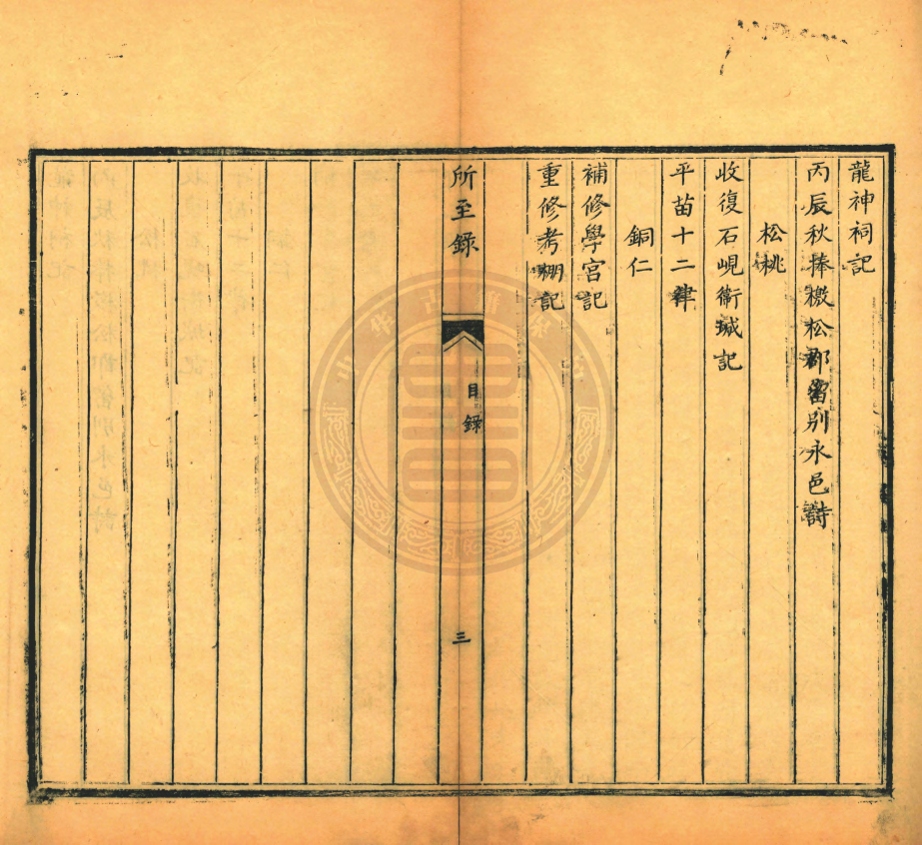 龍神祠記
丙辰秋捧檄松郡留別永邑詩
松桃
收復石峴衛城記
平苗十二律
銅仁
補修學宮記
重修考棚記
所至錄
目錄
三